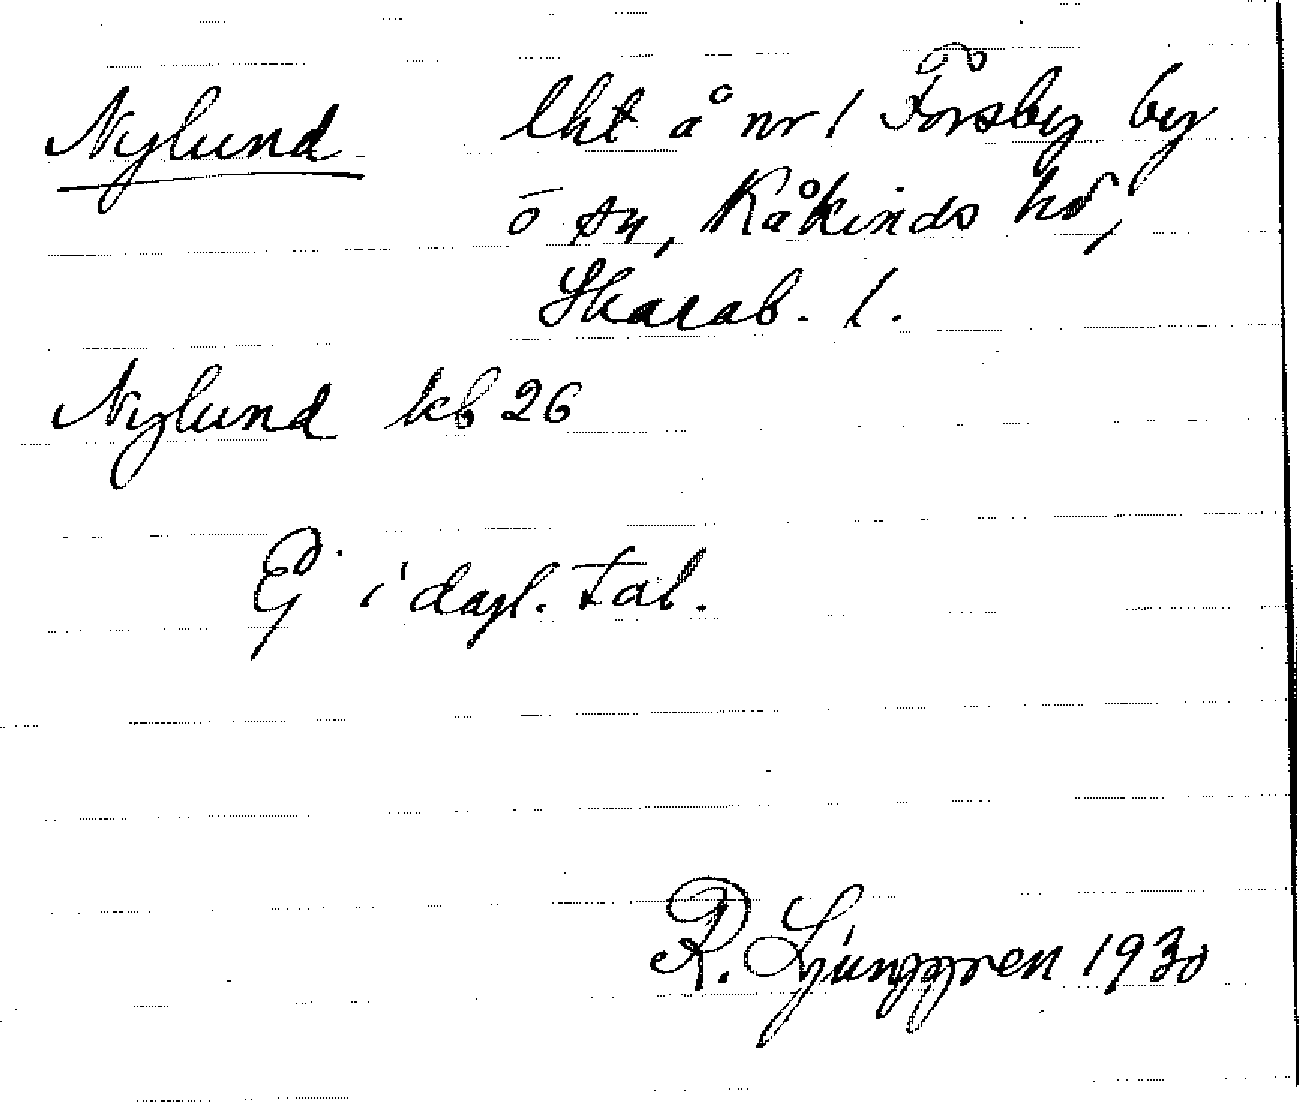 Nylund lht å nr 1 Forsby by
o sn, Kåkinds hd,
Skarab. l.
Nylund kb 26
Ej i dagl. tal.
R. Ljunggren 1930